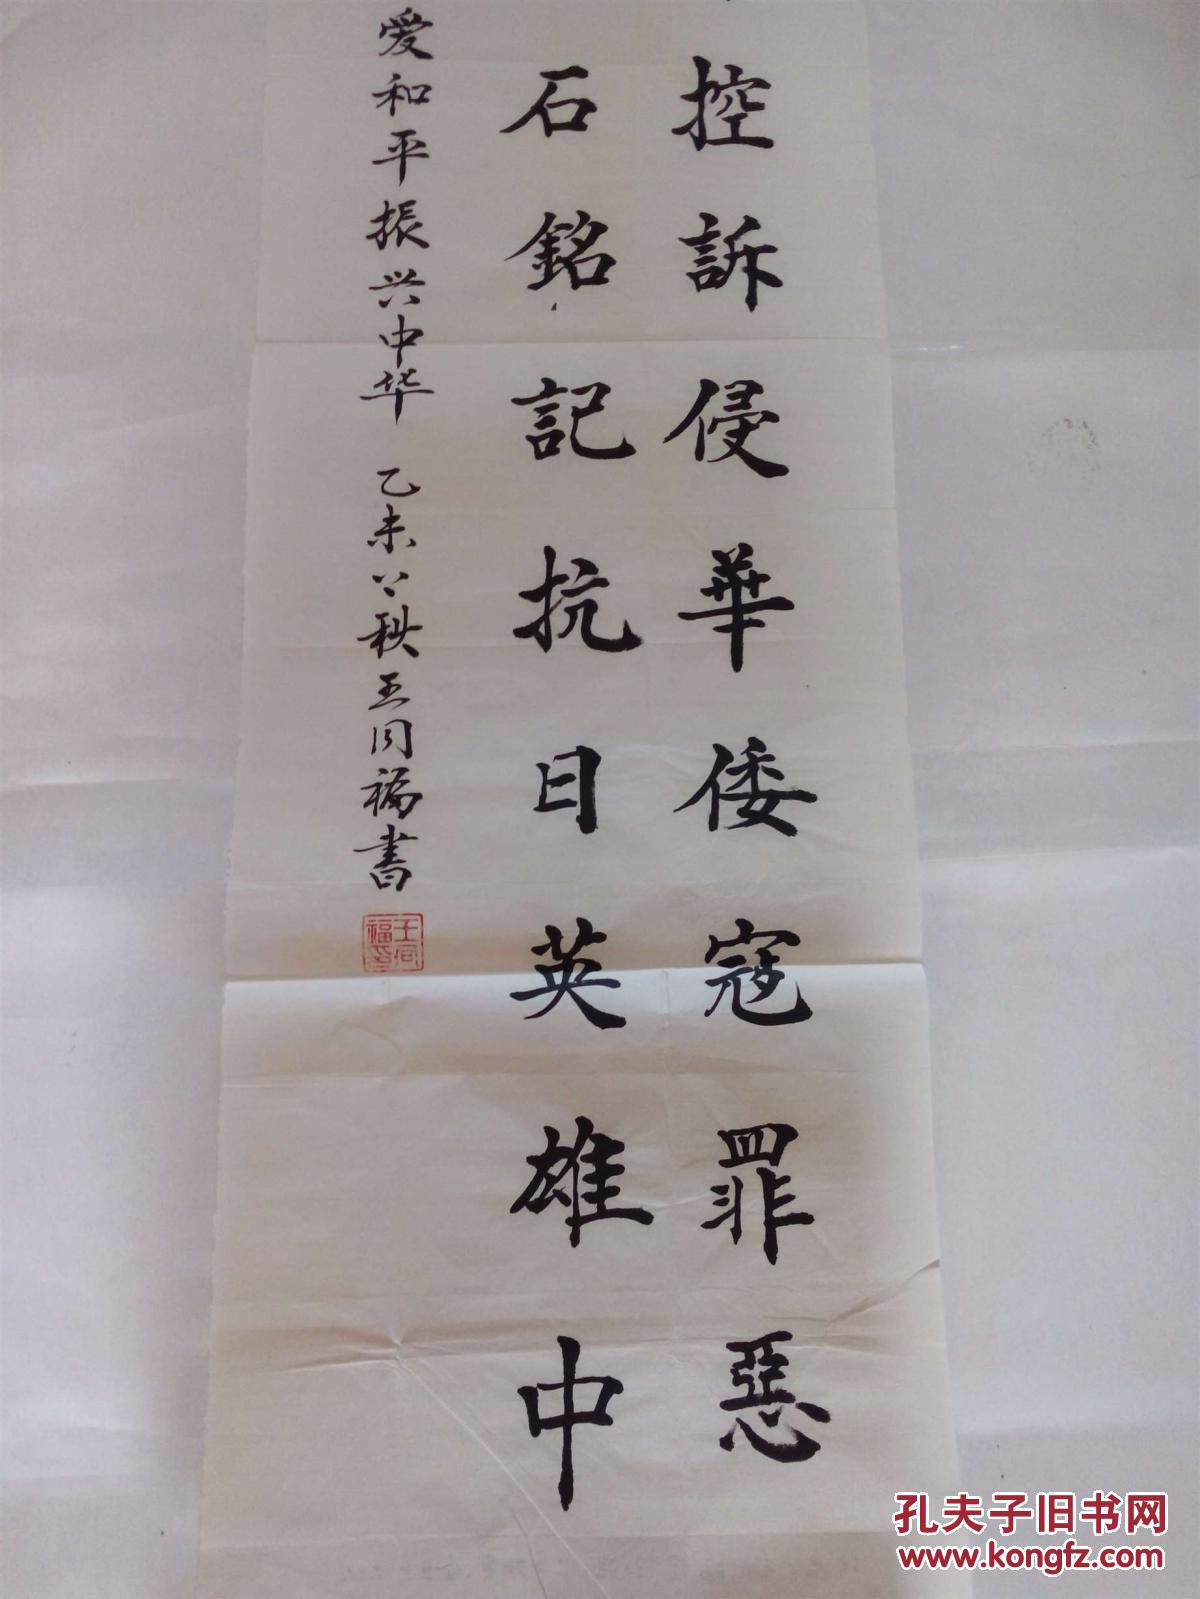 控訴侵華倭寇罪惡
石銘記抗日英雄中
爱和平振兴中华 乙未之秋王同福書
王同福印
孔夫子旧书网
www.kongfz.com